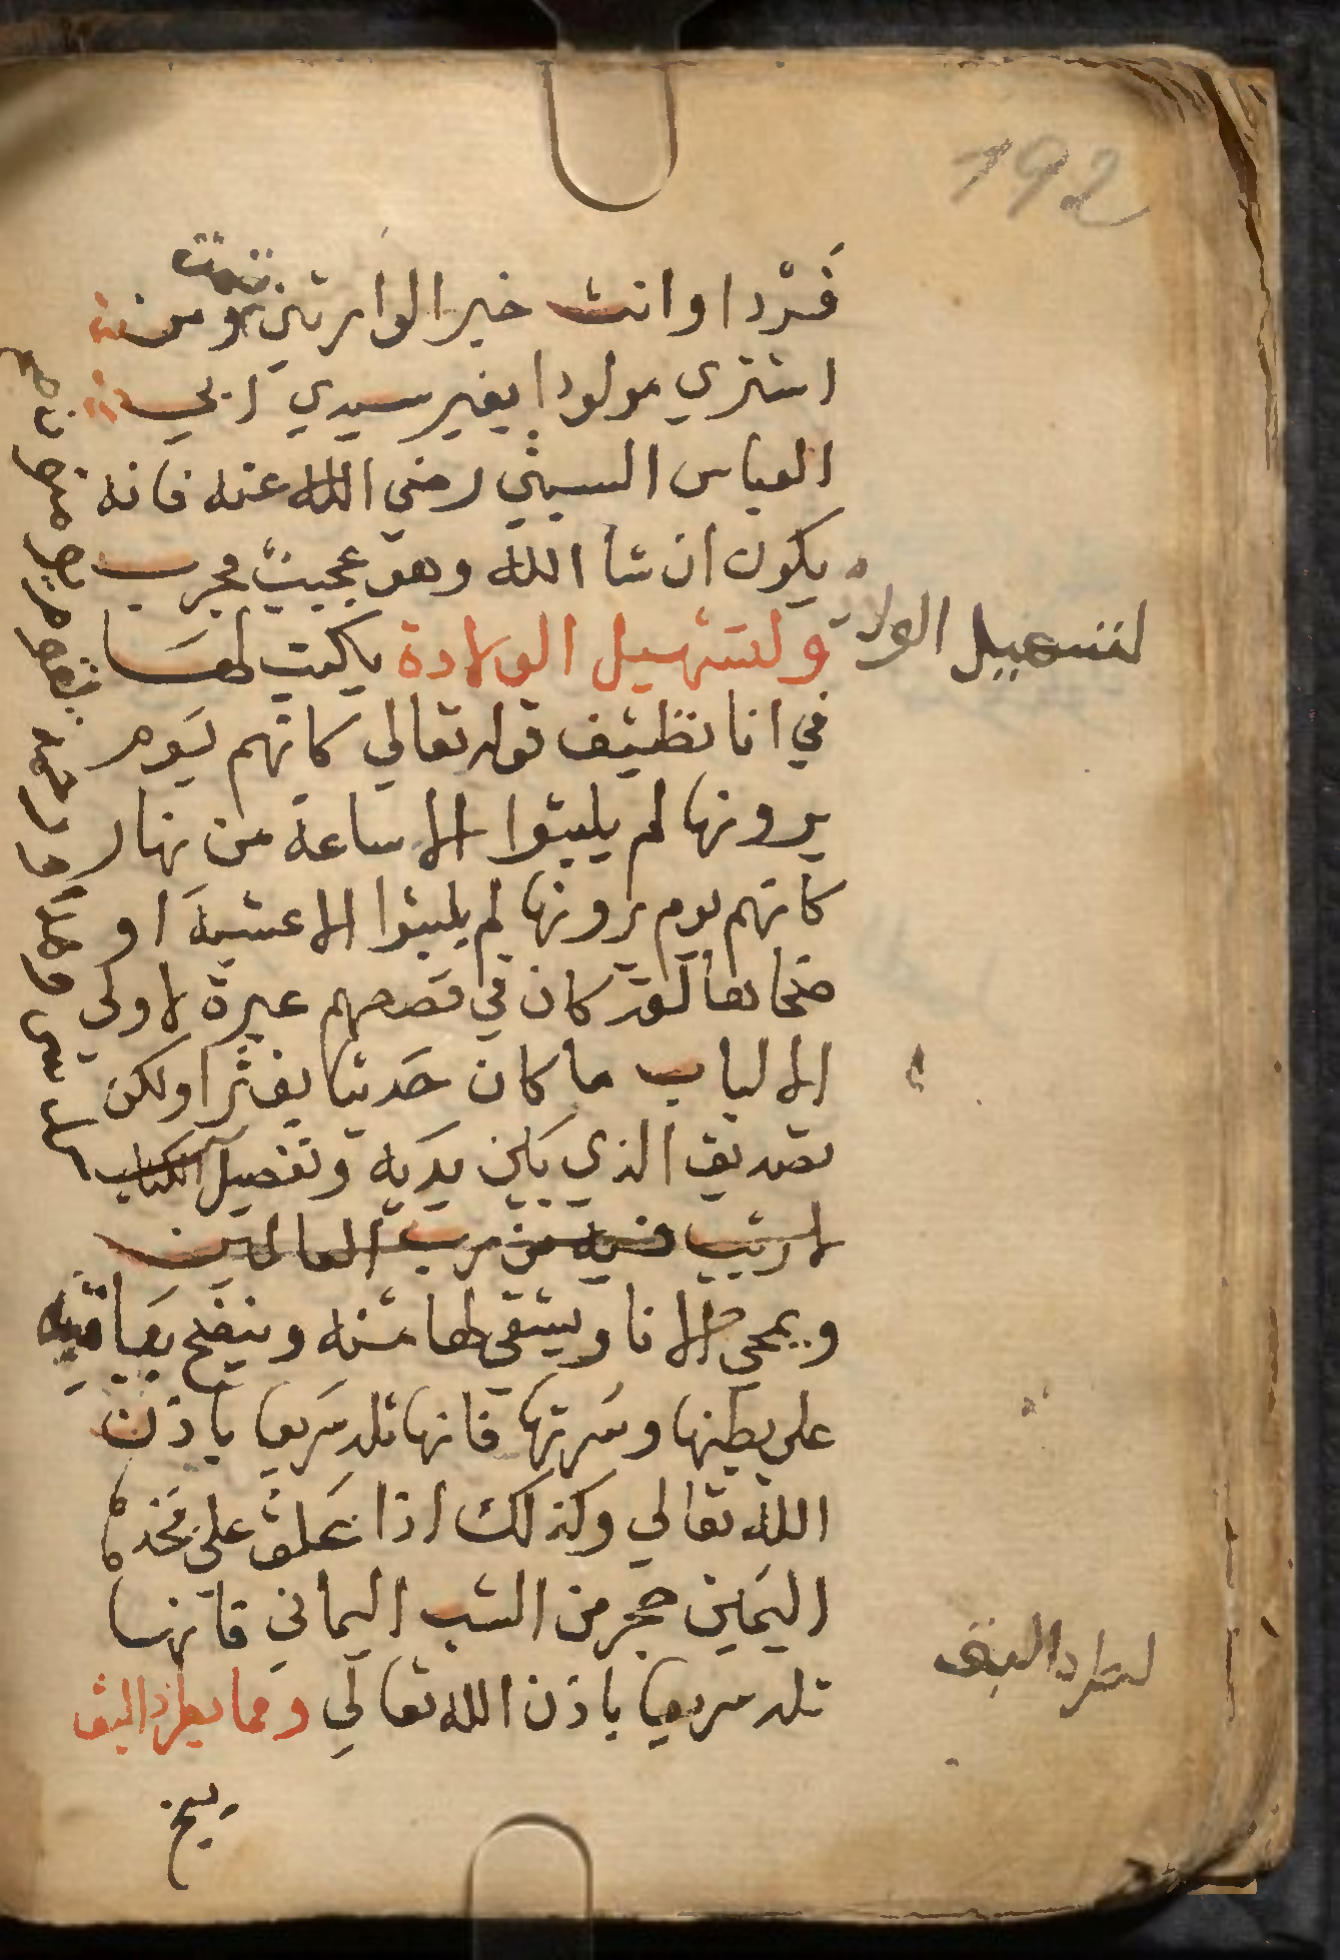 192
فَرْدا وانت خير الوارثين ومن
اشتري مولودا بغير سيدي ابي
العباس السبتي رضي الله عنه فانه
يكون ان شا الله وهو عجيب مجرب
لتسهيل الولادة
ولتسهيل الولادة يكتب لها
في انا نظيف قوله تعالي كانهم يوم
يرونها لم يلبثوا الا ساعة من نهار
كانهم يوم يرونها لم يلبثوا الا عشية او
ضحاها لقد كان في قصصهم عبرة لاولي
الالباب ما كان حديثا يفترا ولكن
تصديق الذي بين يديه وتفصيل الكتاب
لا ريب فيه من رب العالمين
ويمحي الانا ويسقي لها منه وينضح بباقيه
علي بطنها وسرتها فانها تلد سريعا باذن
الله تعالي وكذلك اذا علق علي فخذها
اليمين حجر من الشب اليماني فانها
تلد سريعا باذن الله تعالي ومما يطرد البق
لطرد البق